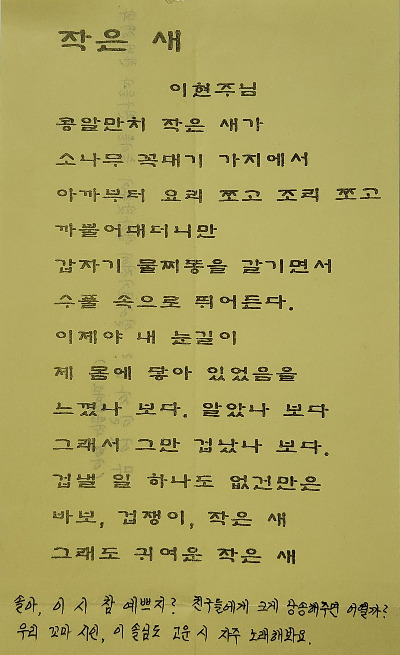 작은 새
이현주님
콩알만치 작은 새가
소나무 꼭대기 가지에서
아까부터 요리 쪼고 조리 쪼고
까불어대더니만
갑자기 물찌똥을 갈기면서
수풀 속으로 뛰어든다.
이제야 내 눈길이
제 몸에 닿아 있었음을
느꼈나 보다. 알았나 보다
그래서 그만 겁났나 보다.
겁낼 일 하나도 없건만은
바보, 겁쟁이, 작은 새
그래도 귀여운 작은 새
솔아, 이 시 참 예쁘지? 친구들에게 크게 낭송해주면 어떨까?
우리 꼬마 시인, 이 솔님도 고운 시 자주 노래해봐요.